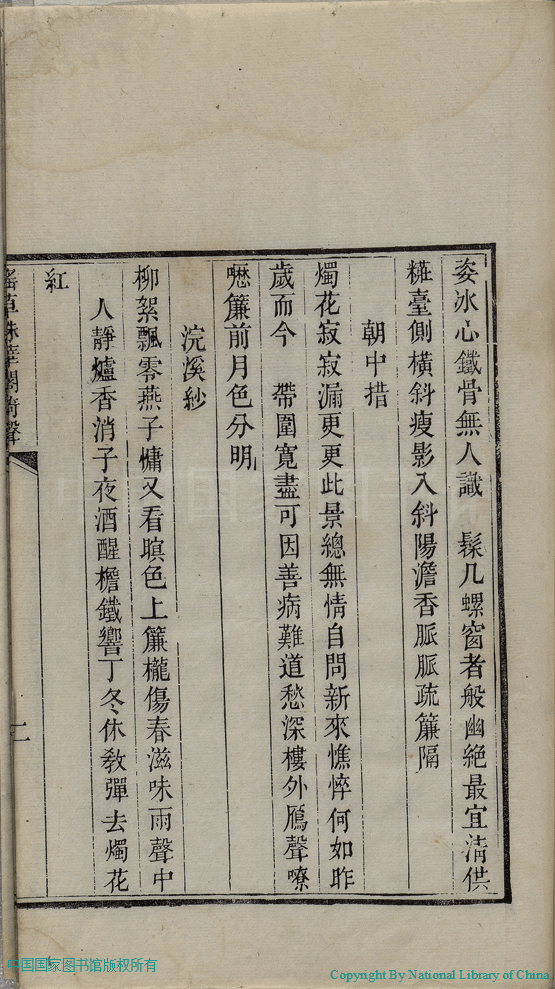 姿冰心鐵骨無人識　髹几螺窗者般幽絕最宜淸供
糚臺側橫斜瘦影入斜陽澹香脈脈疏簾隔
朝中措
燭花寂寂漏更更此景總無情自問新來憔悴何如昨
歲而今　帶圍寬盡可因善病難道愁深樓外鴈聲嘹
嚦簾前月色分明
浣溪紗
柳絮飄零燕子慵又看暝色上簾櫳傷春滋味雨聲中
人靜爐香消子夜酒醒檐鐵響丁冬休敎彈去燭花
紅
閣
聲
二
中国国家图书馆版权所有
Copyright By National Library of China